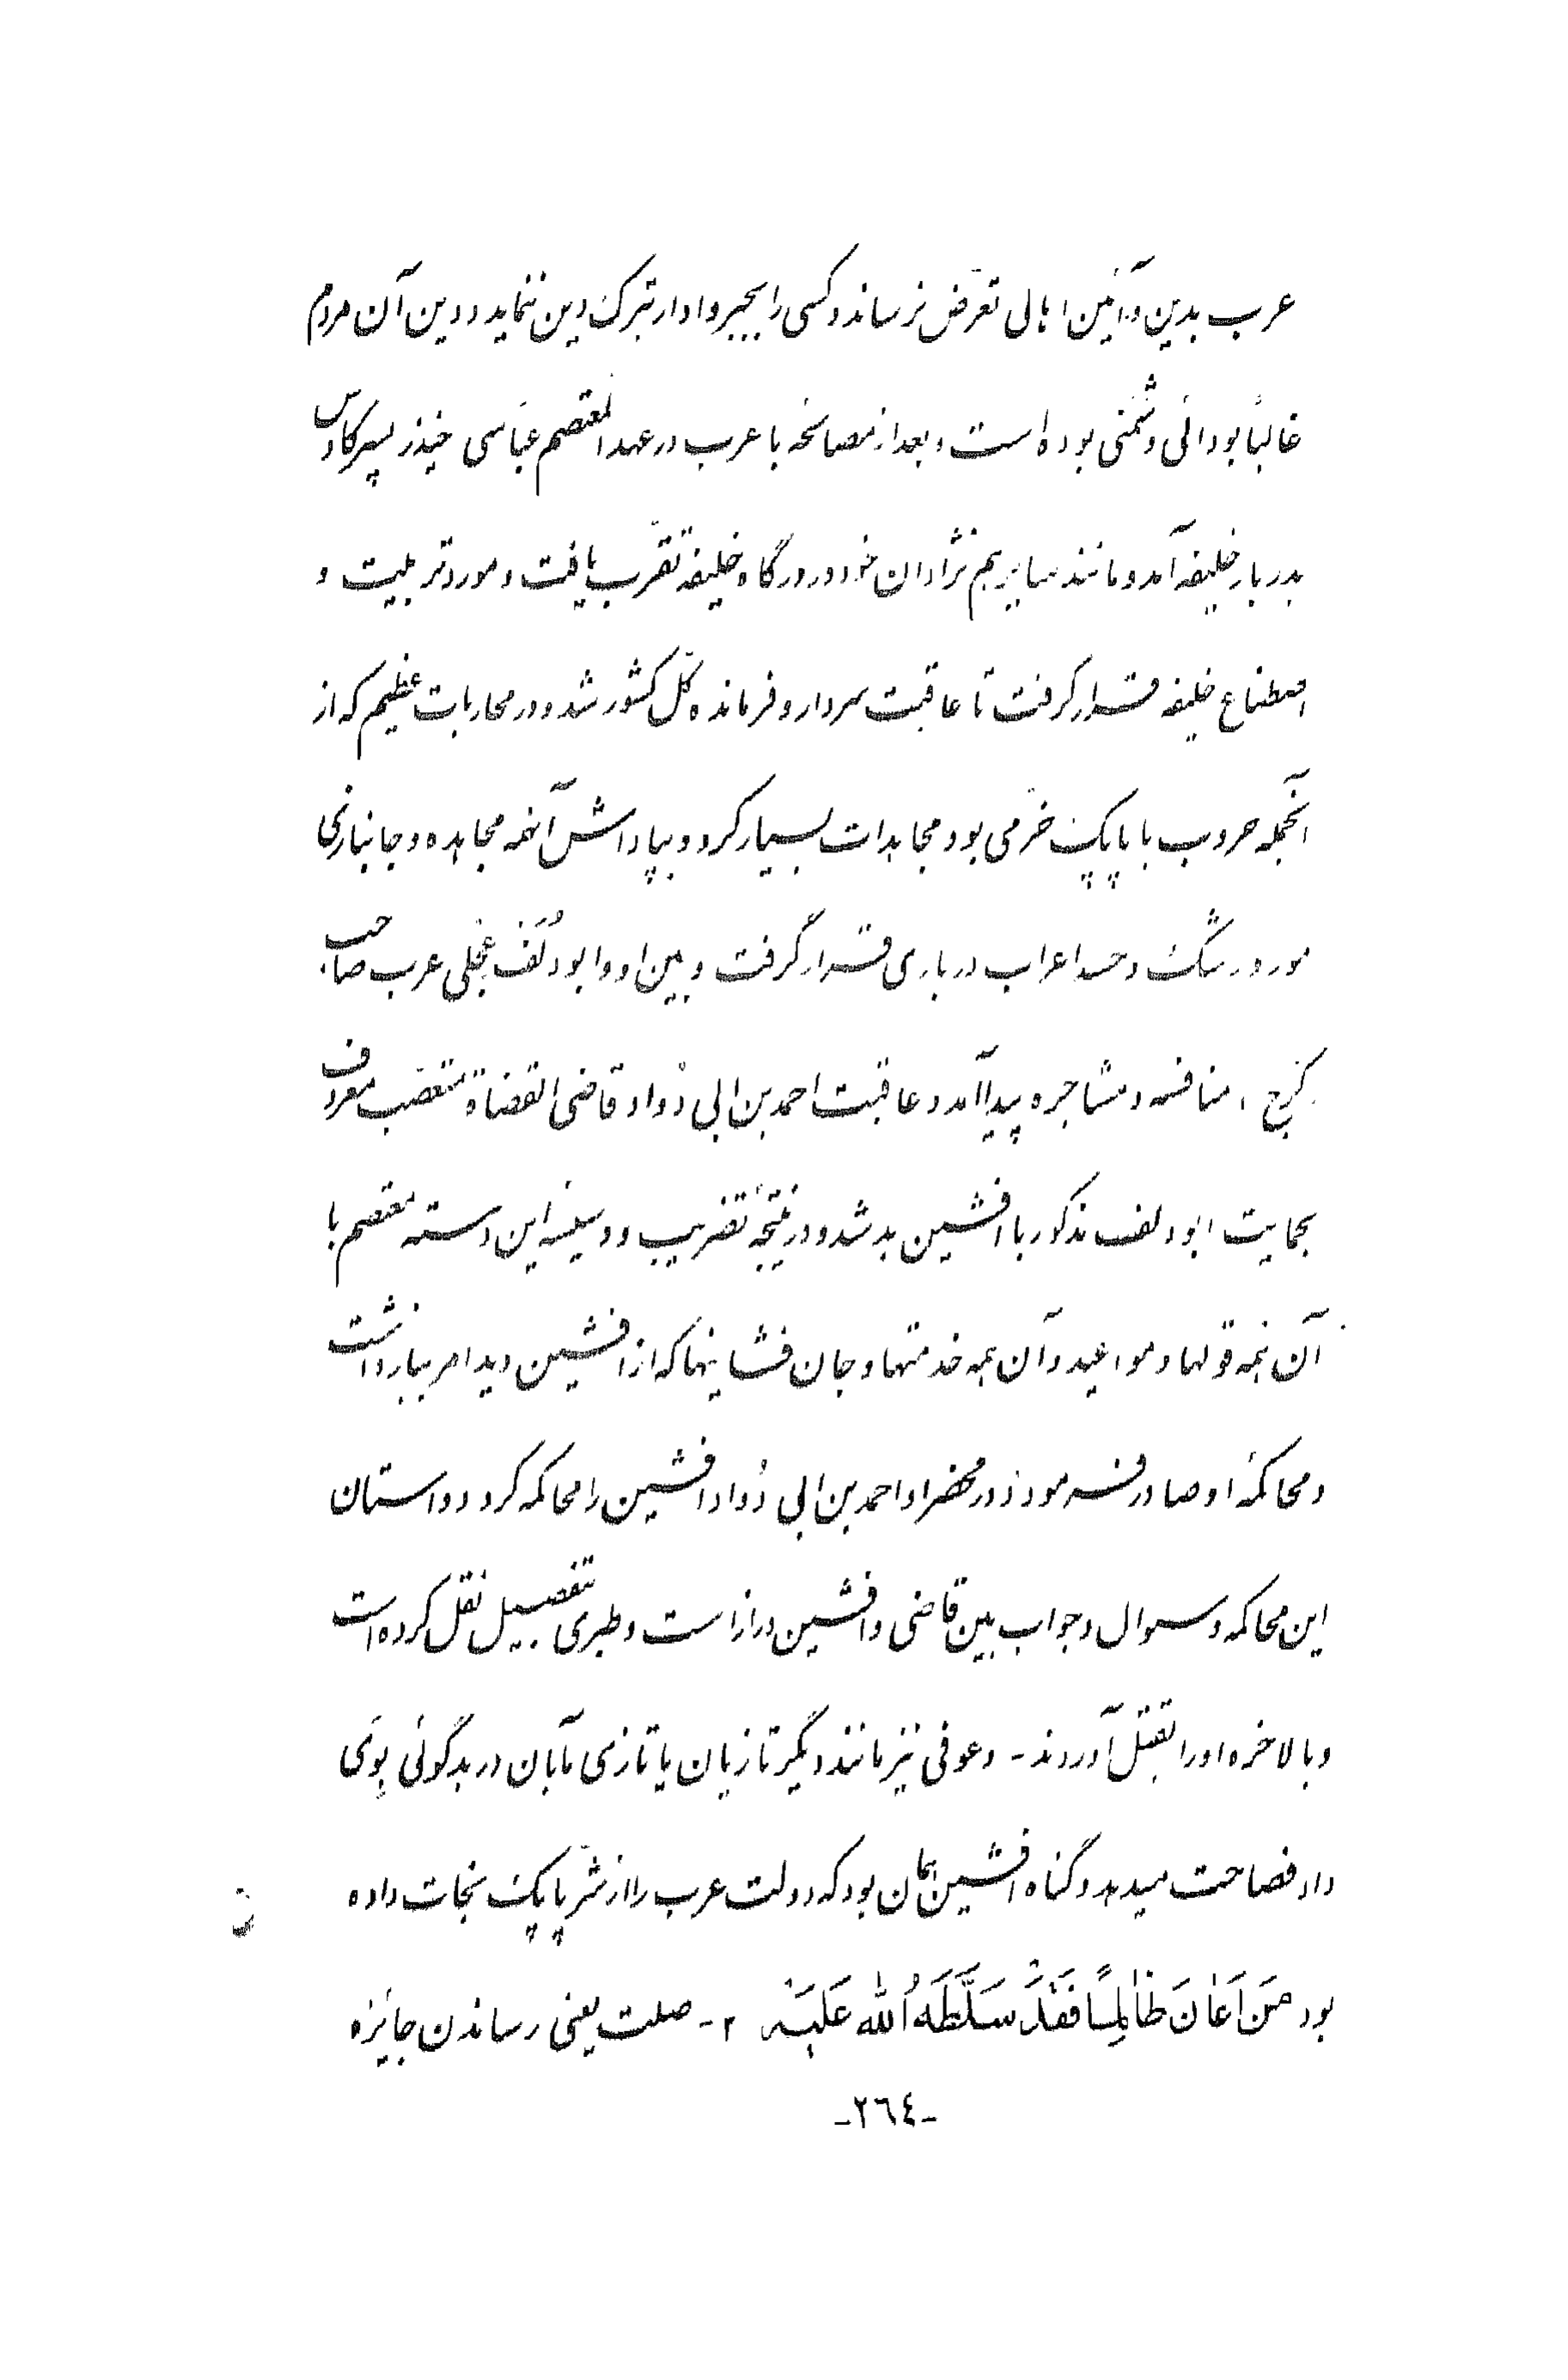 عرب بدین و آئین اهالی تعرّض نرساند و کسی را بجبر وادار بترک دین ننماید و دین آن مردم
غالباً بودائی و شمنی بوده است و بعد از مصالحه با عرب در عهد المعتصم عبّاسی خیذر پسر کاوس
بدربار خلیفه آمد و مانند سایر هم نژادان خود در درگاه خلیفه تقرّب یافت و مورد تربیت و
اصطناع خلیفه قرار گرفت تا عاقبت سردار و فرمانده کلّ کشور شد و در محاربات عظیم که از
آنجمله حروب با پاپک خرّمی بود مجاهدات بسیار کرد و بپاداش آنهمه مجاهده و جانبازی
مورد رشک و حسد اعراب درباری قرار گرفت و بین او و ابودُلَف عِجلی عرب صاحب
کَرَج ، منافسه و مشاجره پیدا آمد و عاقبت احمد بن ابی دُواد قاضی القضاة متعصّب معروف
بحمایت ابودلف مذکور با افشین بد شد و در نتیجهٔ تضریب و دسیسهٔ این دسته معتصم با
آن همه قولها و مواعید و آن همه خدمتها و جان فشانیها که از افشین دید امر ببازداشت
و محاکمهٔ او صادر فرمود و در محضر او احمد بن ابی دُواد افشین را محاکمه کرد و داستان
این محاکمه و سوال و جواب بین قاضی و افشین دراز است و طبری بتفصیل نقل کرده است
و بالاخره او را بقتل آوردند - و عوفی نیز مانند دیگر تازیان یا تازی مآبان در بدگوئی بِوَی
داد فصاحت میدهد و گناه افشین همان بود که دولت عرب را از شرّ پاپک نجات داده
بود مَن اَعٰانَ ظٰالِماً فَقَدْ سَلَّطَهُ اللهُ عَلَیْه ۲- صلت یعنی رساندن جائزه
-٢٦٤-